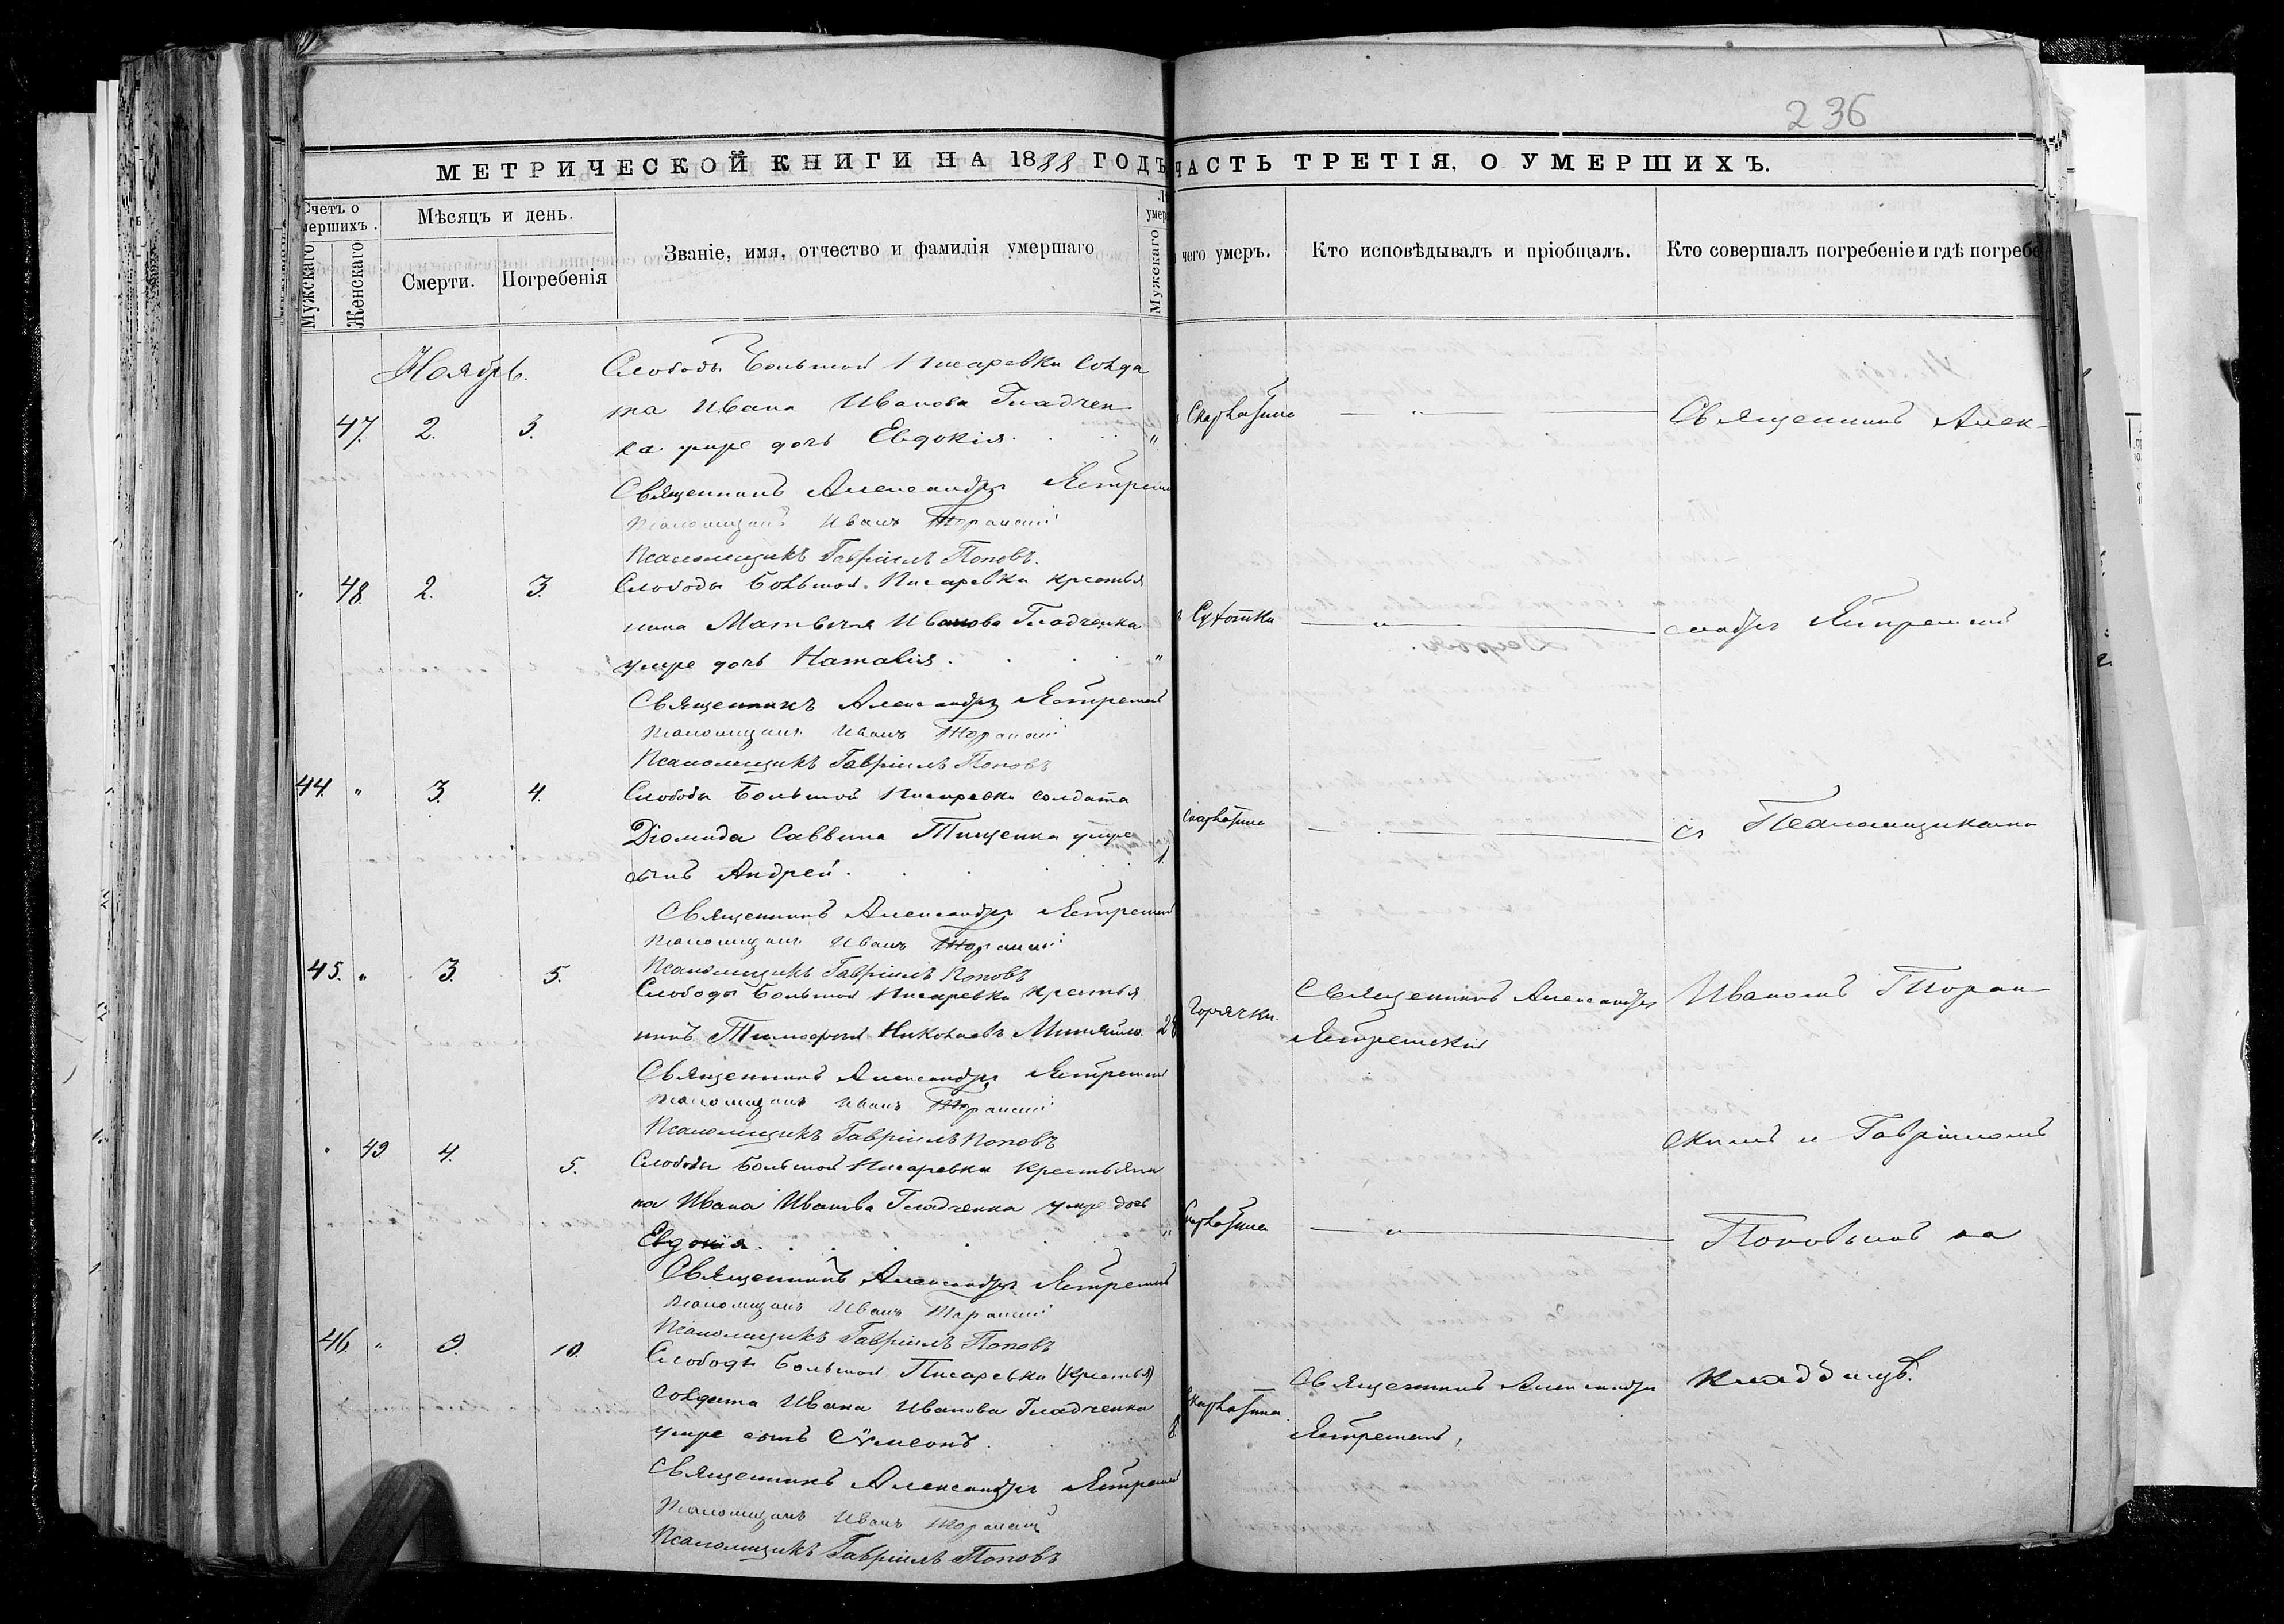 236
МЕТРИЧЕСКОЙ КНИГИ НА 1888 ГОДЪ
ЧАСТЬ ТРЕТІЯ, О УМЕРШИХЪ.
Счетъ о
мершихъ.
Мужскаго
Женскаго
Мѣсяцъ и день.
Смерти.
Погребенія
Званіе, имя, отчество и фамилія умершаго
умер
Мужскаго
чего умеръ.
Кто исповѣдывалъ и пріобщалъ.
Кто совершалъ погребеніе и гдѣ погребе
Ноябрь.
47. 2. 3.
Слободы Большой Писаревки солда
та Ивана Иванова Гладчен
ка умре дочь Евдокія. "
Скарлатина — " —
Священникъ Алек-
Священникъ Александръ
Псаломщикъ Иванъ
Псаломщикъ Гавріилъ Поповъ.
" 48. 2. 3.
Слободы Большой Писаревки крестья
нина Матвѣя Иванова Гладченка
умре дочь Наталія. "
Сухотки — " —
сандръ
Священникъ Александръ
Псаломщикъ Иванъ
Псаломщикъ Гавріилъ Поповъ
44. " 3. 4.
Слободы Большой Писаревки солдата
Діомида Саввина Тищенка умре
сынъ Андрей. 1.
Скарлатина
съ Псаломщиками
Священникъ Александръ
Псаломщикъ Иванъ
Псаломщикъ Гавріилъ Поповъ
45. " 3. 5.
Слободы Большой Писаревки крестья
нинъ Тимофей Николаевъ 28
Горячки.
Священникъ Александръ
Иваномъ
Священникъ Александръ
Псаломщикъ Иванъ
Псаломщикъ Гавріилъ Поповъ
" 49. 4. 5.
Слободы Большой Писаревки крестьяни
на Ивана Иванова Гладченка умре дочь
Евдокія. "
Скарлатина — " —
скимъ и Гавріиломъ
Поповымъ на
Священникъ Александръ
Псаломщикъ Иванъ
Псаломщикъ Гавріилъ Поповъ
46. " 9. 10.
Слободы Большой Писаревки (крестья)
солдата Ивана Иванова Гладченка
умре сынъ Сѵмеонъ. 8
Скарлатина.
Священникъ Александръ
кладбищѣ.
Священникъ Александръ
Псаломщикъ Иванъ
Псаломщикъ Гавріилъ Поповъ